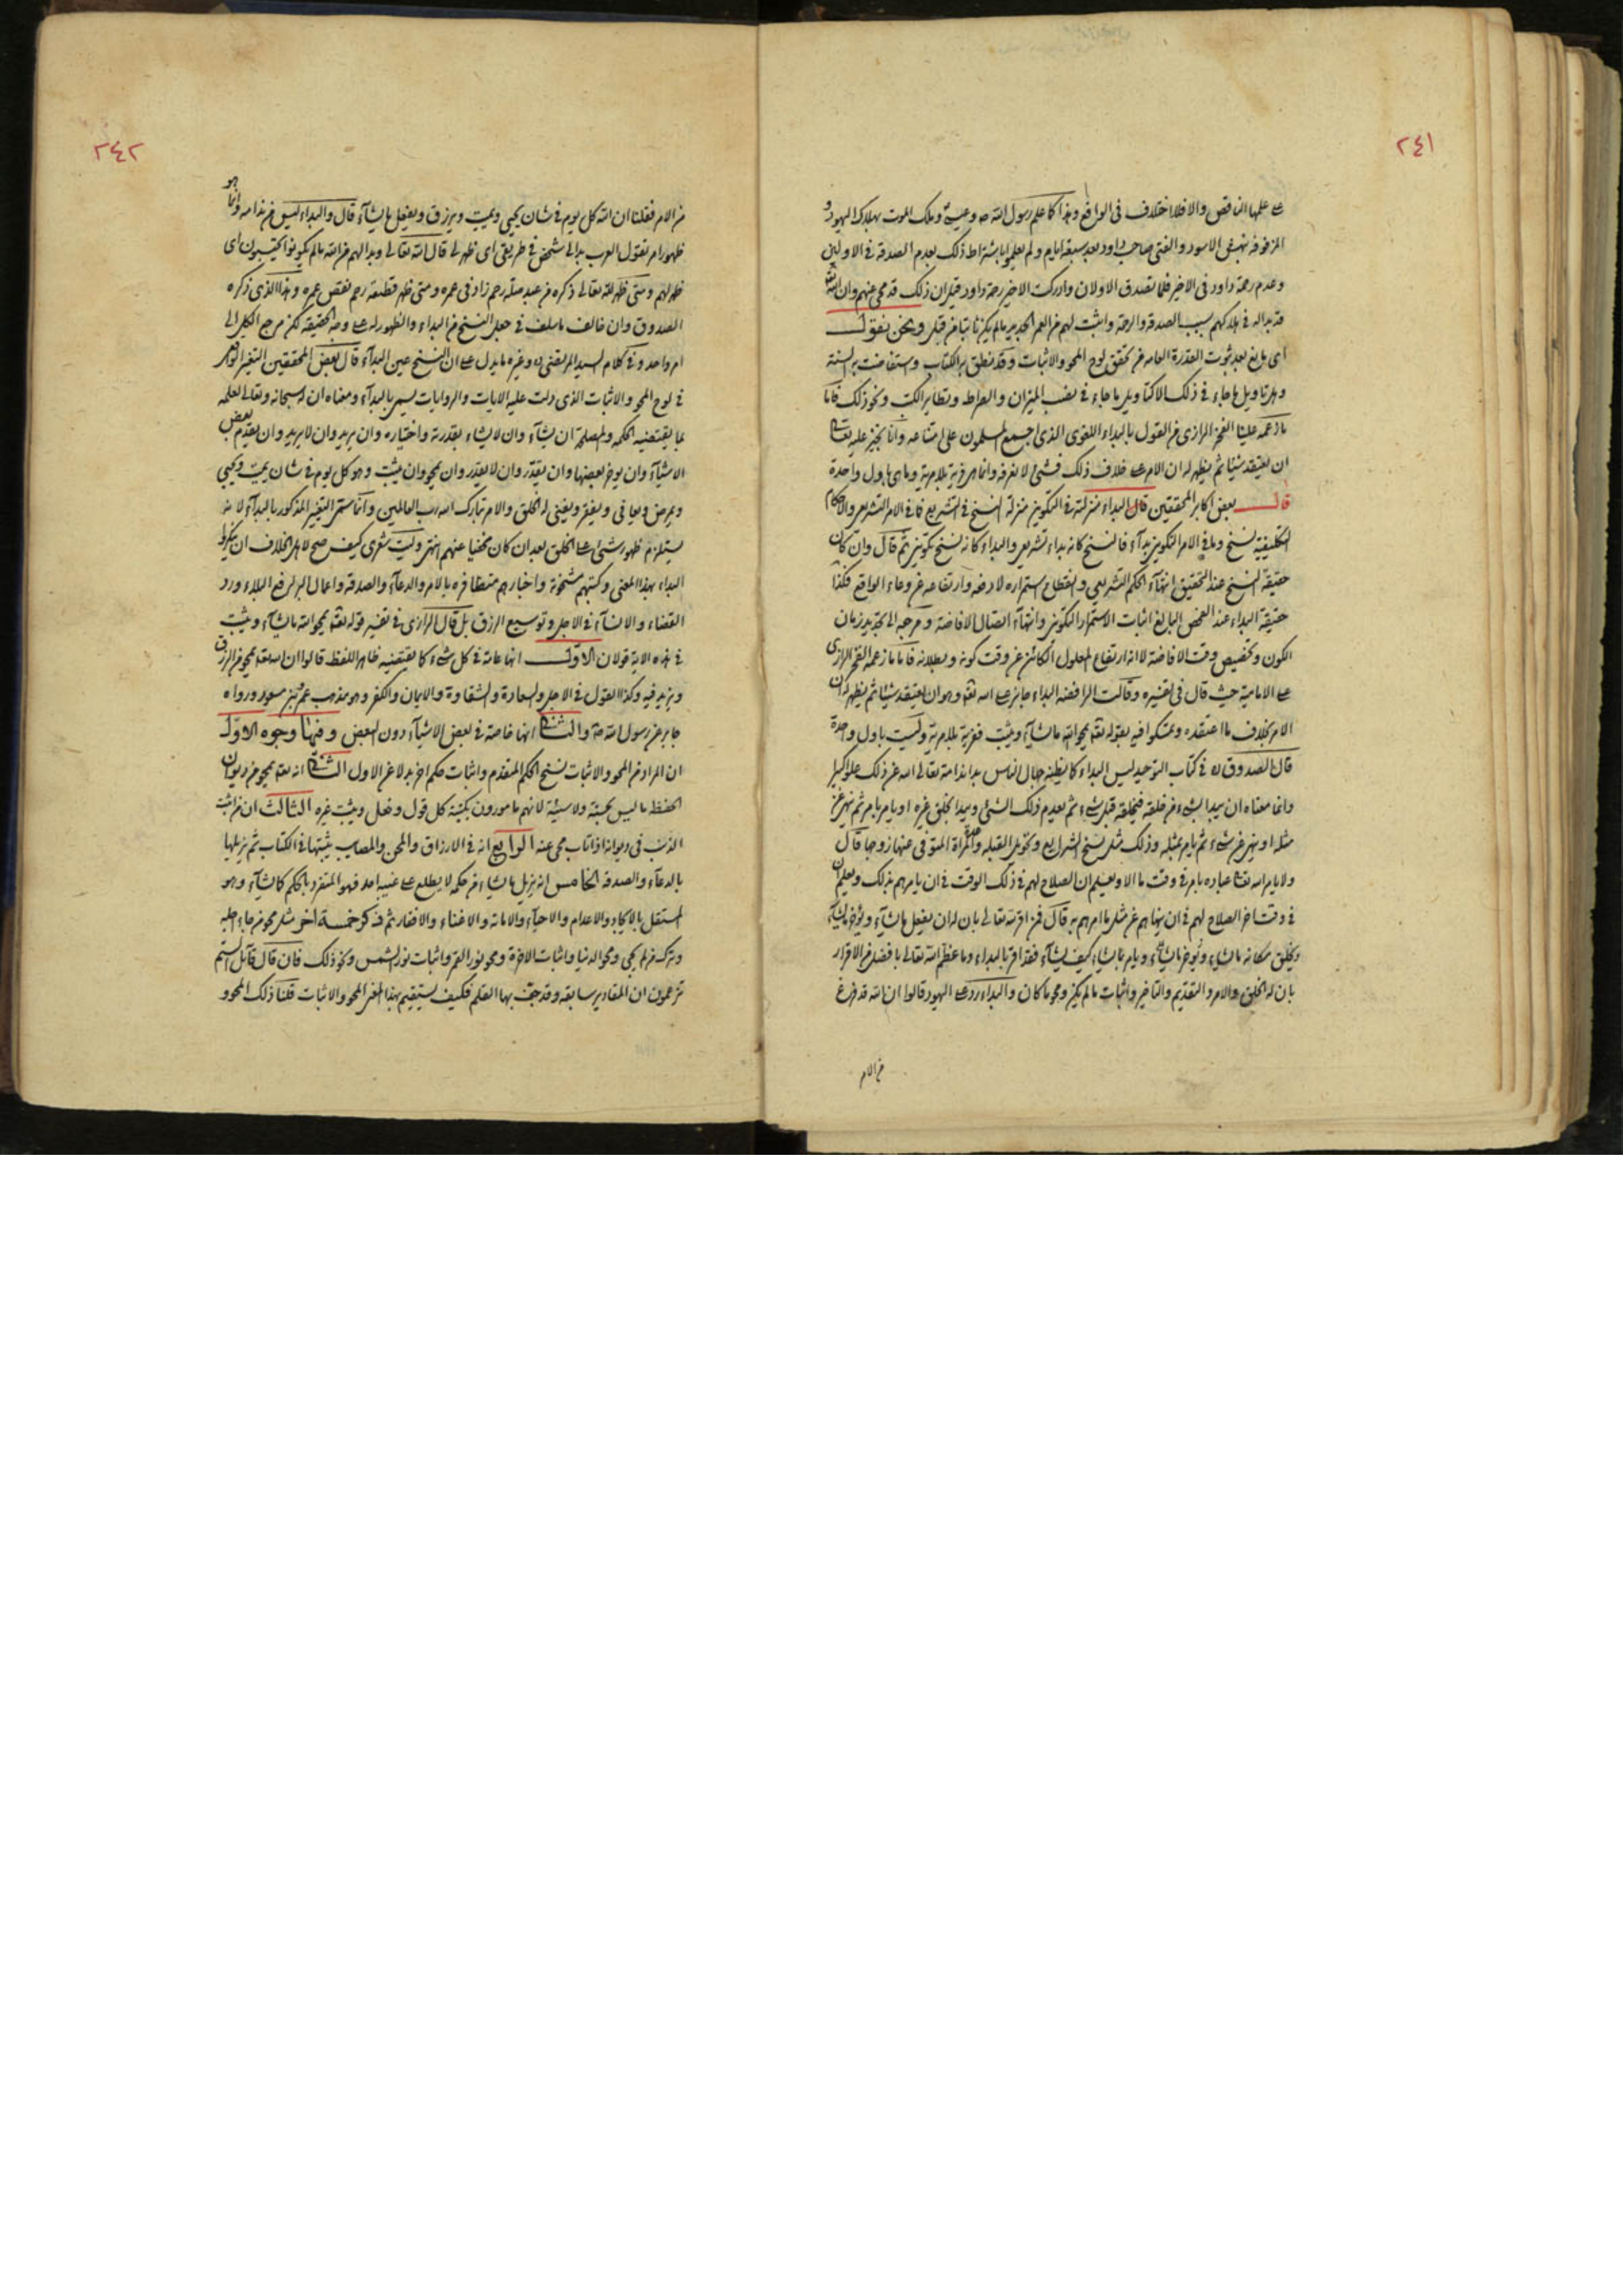 ٢٤١
علمها الناقص والا فلا اختلاف فى الواقع وهذا كما علم رسول الله ص وعيسى وملك الموت بهلاك اليهود و
المزفوفة بنهش الاسود والفتى صاحب داود بعد سبعة ايام ولم يعلموا باشتراط ذلك بعدم الصدقة فى الاولين
وعدم رحمة داود فى الاخير فلما تصدق الاولان وادركت الاخير رحمة داود قيل ان ذلك قد محى عنهم وان الله
قد بدا له فى هلاكهم بسبب الصدقة والرحمة واثبت لهم من العمر الجديد ما لم يكن ثابتا من قبل ونحن نقول
اى مانع بعد ثبوت القدرة العامه من تحقق لوح المحو والاثبات وقد نطق به الكتاب واستفاضت به السنة
وهل تاويل ما جاء فى ذلك الا كتاويل ما جاء فى نصب الميزان والصراط وتطاير الكتب ونحو ذلك فاما
ما زعمه علينا الفخر الرازى من القول بالبداء اللغوى الذى اجمع المسلمون على امتناعه وانا نجيز عليه تعالى
ان يعتقد شيئا ثم يظهر له ان الامر على خلاف ذلك فشئ لا نعرفه وانما هى فرية بلا مرية وما هى باول واحدة
قال بعض اكابر المحققين قال البداء منزلته فى التكوين منزلة النسخ فى التشريع فما فى الامر التشريعى والاحكام
التكليفية نسخ وما فى الامر التكوينى بدآء فالنسخ كانه بداء تشريعى والبداء كانه نسخ تكوينى ثم قال وان كان
حقيقة النسخ عند التحقيق انتهآء الحكم التشريعى وانقطاع استمراره لا رفعه وارتفاعه عن وعاء الواقع فكذا
حقيقة البداء عند الفحص البالغ اثبات الاستمرار التكوينى وانتهآء اتصال الافاضة ومرجعه الى تحديد زمان
الكون وتخصيص وقت الافاضة لا انه ارتفاع المعلول الكائن عن وقت كونه وبطلانه فاما ما زعمه الفخر الرازى
على الامامية حيث قال فى تفسيره وقالت الرافضه البداء جايز على الله تعه وهو ان يعتقد شيئا ثم يظهر له ان
الامر بخلاف ما اعتقده وتمسكوا فيه بقوله تعه يمحو الله ما يشآء ويثبت ففرية بلا مرية وليست باول واحدة
قال الصدوق ره فى كتاب التوحيد ليس البداء كما يظنه جهال الناس بداء ندامة تعالى الله عن ذلك علوا كبيرا
وانما معناه ان يبدا بشئ من خلقه فيخلقه قبل شئ ثم يعدم ذلك الشئ ويبدا بخلق غيره او يامر بامر ثم ينهى عن
مثله او ينهى عن شئ ثم يامر بمثله وذلك مثل نسخ الشرايع وتحويل القبله وعدة المراة المتوفى عنها زوجها قال
ولا يامر الله تعالى عباده بامر فى وقت ما الا ويعلم ان الصلاح لهم فى ذلك الوقت فى ان يامرهم بذلك ويعلم ان
فى وقت اخر الصلاح لهم فى ان ينهاهم عن مثل ما امرهم به قال فمن اقر لله تعالى بان له ان يفعل ما يشآء ويؤخر ما يشآء
ويخلق مكانه ما يشاء ويؤخر ما يشآء ويامر بما يشاء كيف يشآء فقد اقر بالبداء وما عظم الله تعالى بافضل من الاقرار
بان له الخلق والامر والتقديم والتاخير واثبات ما لم يكن ومحو ما كان والبداء رد على اليهود قالوا ان الله قد فرغ
من الامر
٢٤٢
من الامر فقلنا ان الله كل يوم فى شان يحيى ويميت ويرزق ويفعل ما يشآء قال والبداء ليس من ندامه وانما هو
ظهور امر تقول العرب بدا لى شخص فى طريقى اى ظهر لى قال الله تعالى وبدا لهم من الله ما لم يكونوا يحتسبون اى
ظهر لهم ومتى ظهر لله تعالى ذكره من عبد صلة رحم زاد فى عمره ومتى ظهر قطيعة رحم نقص عمره وهذا الذى ذكره
الصدوق وان خالف ما سلف فى جعل النسخ من البداء والظهور له على وجه الحقيقه لكن مرجع الكل الى
امر واحد وفى كلام السيد المرتضى ره وغيره ما يدل على ان النسخ عين البدآء قال بعض المحققين التغير الواقع
فى لوح المحو والاثبات الذى دلت عليه الايات والروايات يسمى بالبدآء ومعناه ان له سبحانه وتعالى لعلمه
بما يقتضيه الحكمه والمصلحة ان يشآء وان لا يشاء بقدرته واختياره وان يريد وان لا يريد وان يقدم بعض
الاشيآء وان يوخر بعضها وان يقدر وان لا يقدر وان يمحو وان يثبت وهو كل يوم فى شان يميت ويحيى
ويمرض ويعافى ويفقر ويغنى له الخلق والامر تبارك الله رب العالمين وانما سمى التغير المذكور بالبدآء لانه
يستلزم ظهور شئ على الخلق بعد ان كان مخفيا عنهم انتهى وليت شعرى كيف صح لاهل الخلاف ان ينكروا
البداء بهذا المعنى وكتبهم مشحونة واخبارهم متظافره بالامر والدعآء والصدقه واعمال البر لدفع البلاء ورد
القضاء والانسآء فى الاجل وتوسيع الرزق بل قال الرازى فى تفسير قوله تعه يمحو الله ما يشآء ويثبت
فى هذه الاية قولان الاول انها عامة فى كل شئ كما يقتضيه ظاهر اللفظ قالوا ان الله تعه يمحو من الرزق
ويزيد فيه وكذا القول فى الاجل والسعادة والشقاوة والايمان والكفر وهو مذهب عمر وابن مسعود ورواه
جابر عن رسول الله ص والثانى انها خاصة فى بعض الاشيآء دون البعض وفيها وجوه الاول
ان المراد من المحو والاثبات نسخ الحكم المتقدم واثبات حكم اخر بدلا عن الاول الثانى انه تعه يمحو من ديوان
الحفظه ما ليس بحسنة ولا سيئة لانهم مامورون بكتبة كل قول وفعل ويثبت غيره الثالث ان من اثبت
الذنب فى ديوانه اذا تاب محى عنه الرابع انه فى الارزاق والمحن والمصايب يثبتها فى الكتاب ثم يزيلها
بالدعآء والصدقه الخامس انه يزيل ما يشاء من حكمه لا يطلع على غيبه احد فهو المتفرد بالحكم كما يشآء وهو
المستقل بالايجاد والاعدام والاحيآء والاماتة والاغناء والافقار ثم ذكر خمسة اخر مثل محو من جاء اجله
وترك من لم يجى ومحو الدنيا واثبات الاخرة ومحو نور القمر واثبات نور الشمس ونحو ذلك فان قال قائل الستم
تزعمون ان المقادير سابقه وقد جف بها القلم فكيف يستقيم بهذا المعنى المحو والاثبات قلنا ذلك المحو و